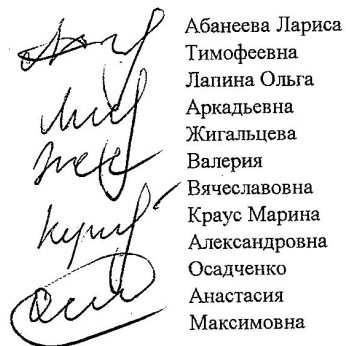 Абанеева Лариса
Тимофеевна
Лапина Ольга
Аркадьевна
Жигальцева
Валерия
Вячеславовна
Краус Марина
Александровна
Осадченко
Анастасия
Максимовна